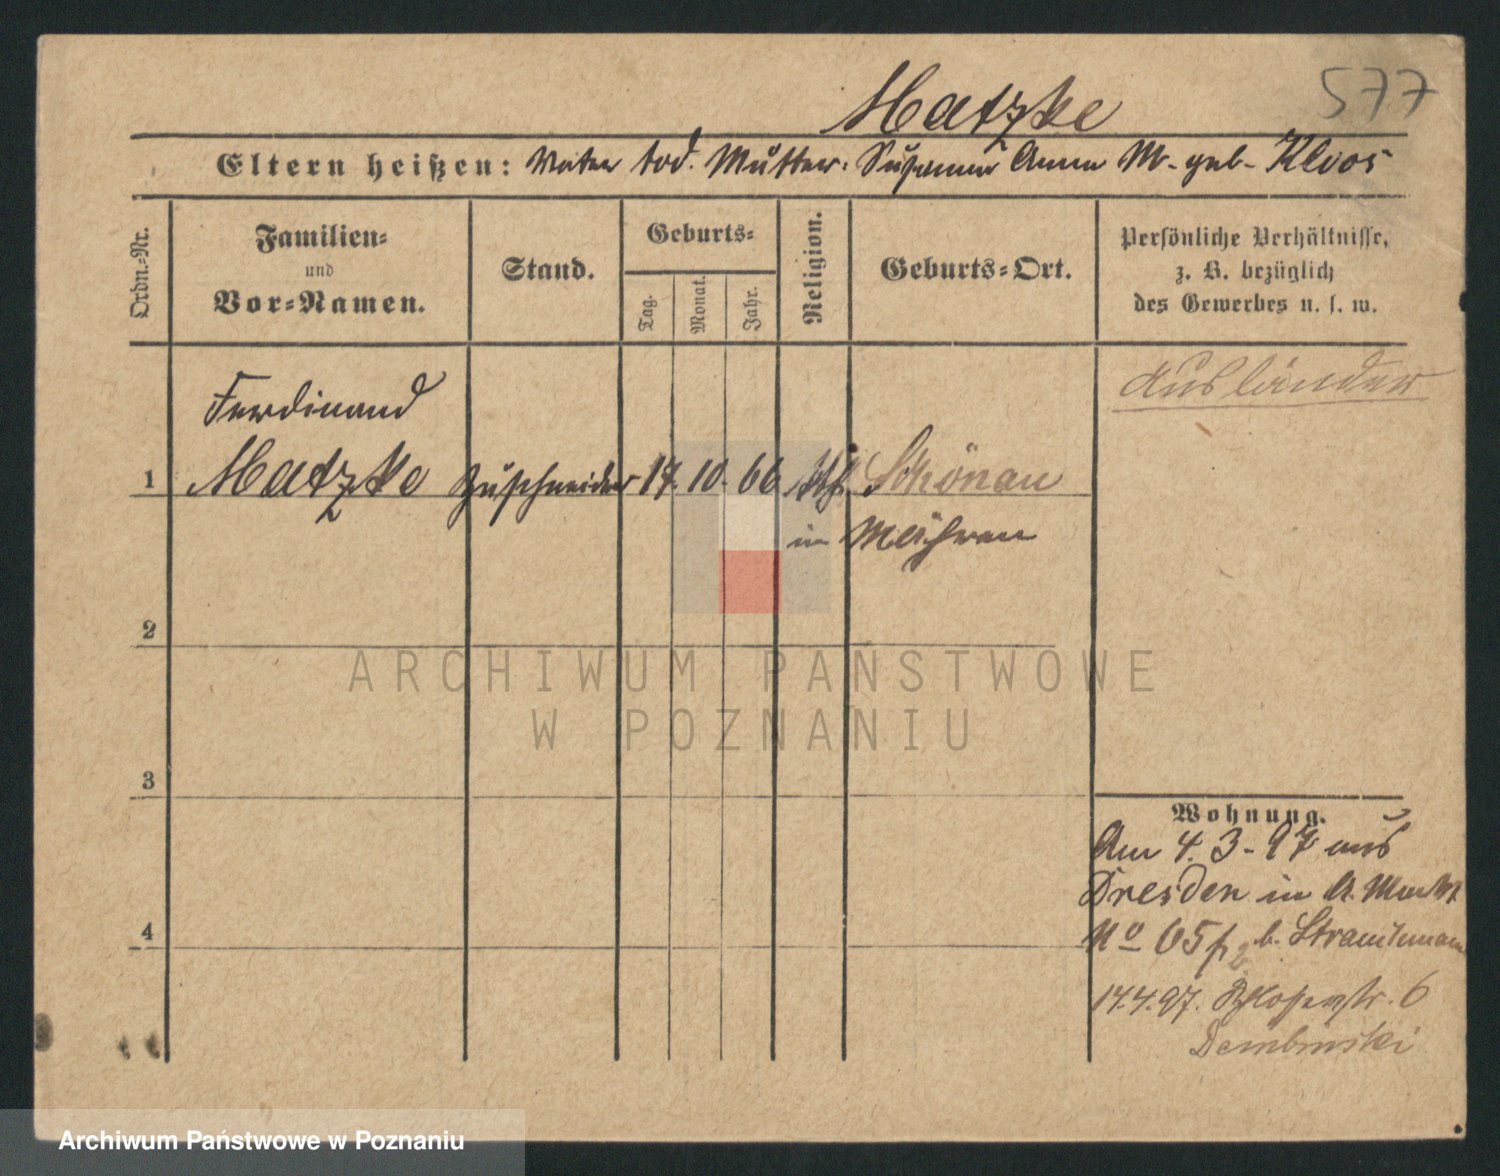 577
Matzke
Eltern heißen: Vater tod. Mutter: Susanna Anna M. geb. Kloos
Ordn.-Nr.
Familien-
und
Vor-Namen.
Stand.
Geburts-
Tag.
Monat.
Jahr.
Religion.
Geburts-Ort.
Persönliche Verhältnisse,
z. B. bezüglich
des Gewerbes u. s. w.
Ausländer
Ferdinand
1 Matzke Zuschneider 17. 10. 66 kth. Schönau
in Mähren
2
ARCHIWUM PAŃSTWOWE
W POZNANIU
3
4
Wohnung.
Am 4. 3. 97 aus
Dresden in A. Markt
No 65 b.
14.4.97. 6
Dembinski
Archiwum Państwowe w Poznaniu